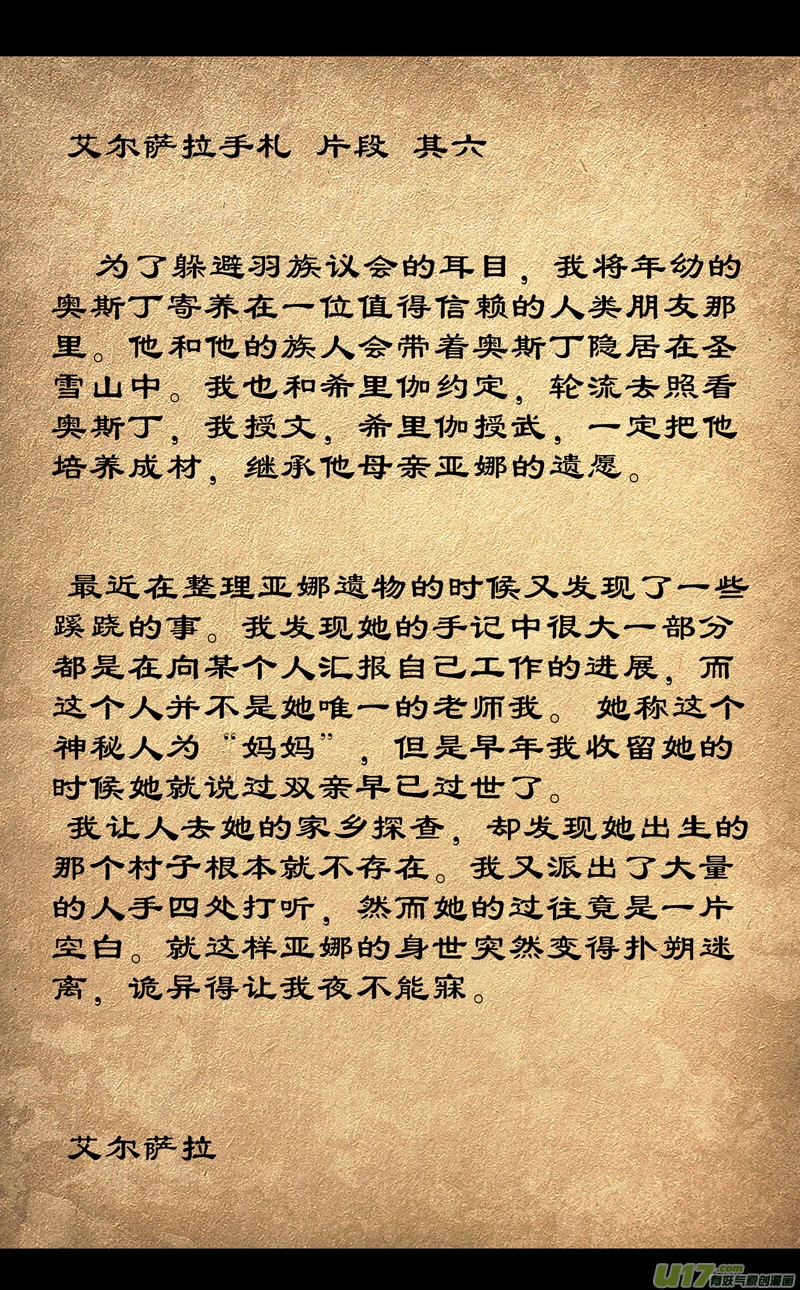 艾尔萨拉手札 片段 其六
为了躲避羽族议会的耳目，我将年幼的
奥斯丁寄养在一位值得信赖的人类朋友那
里。他和他的族人会带着奥斯丁隐居在圣
雪山中。我也和希里伽约定，轮流去照看
奥斯丁，我授文，希里伽授武，一定把他
培养成材，继承他母亲亚娜的遗愿。
最近在整理亚娜遗物的时候又发现了一些
蹊跷的事。我发现她的手记中很大一部分
都是在向某个人汇报自己工作的进展，而
这个人并不是她唯一的老师我。 她称这个
神秘人为“妈妈”，但是早年我收留她的
时候她就说过双亲早已过世了。
我让人去她的家乡探查，却发现她出生的
那个村子根本就不存在。我又派出了大量
的人手四处打听，然而她的过往竟是一片
空白。就这样亚娜的身世突然变得扑朔迷
离，诡异得让我夜不能寐。
艾尔萨拉
U17.com
有妖气原创漫画